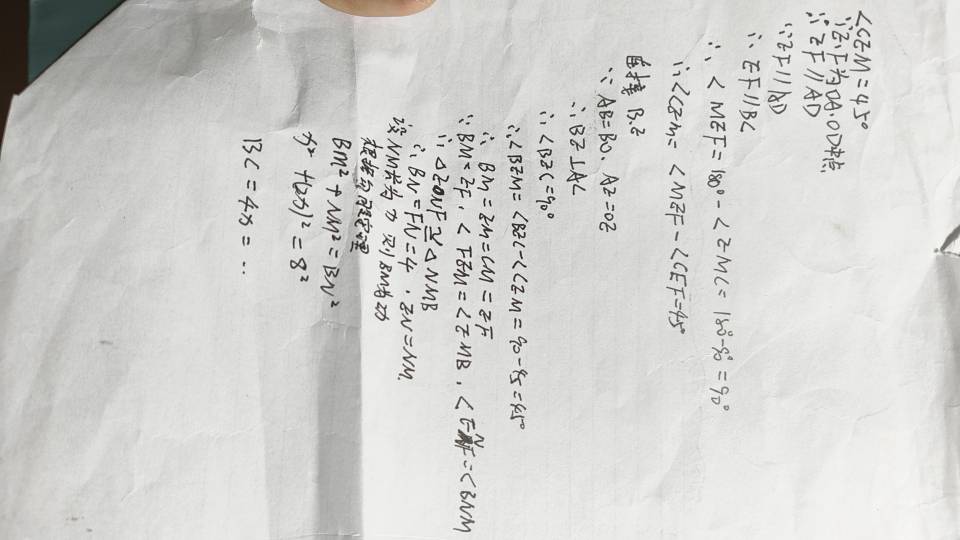 ∠CEM=45°
∵E.F为OA.OD中点
∴EF∥AD
∵EF∥AD
∴EF∥BC
∴∠MEF=180°-∠EMC=180°-90°=90°
∴∠CEM=∠MEF-∠CEF=45°
连接B.E
∵AB=BO.AE=OE
∴BE⊥AC
∴∠BEC=90°
∴∠BEM=∠BEC-∠CEM=90-45=45°
∴BM=EM=CM=EF
∵BM=EF.∠FEM=∠EMB.∠ENF=∠BNM
∴△ENF≌△NMB
∴BN=FN=4.EN=NM.
设NM长为x则BM为2x
根据勾股定理
BM²+NM²=BN²
x²+(2x)²=8²
BC=4x=..